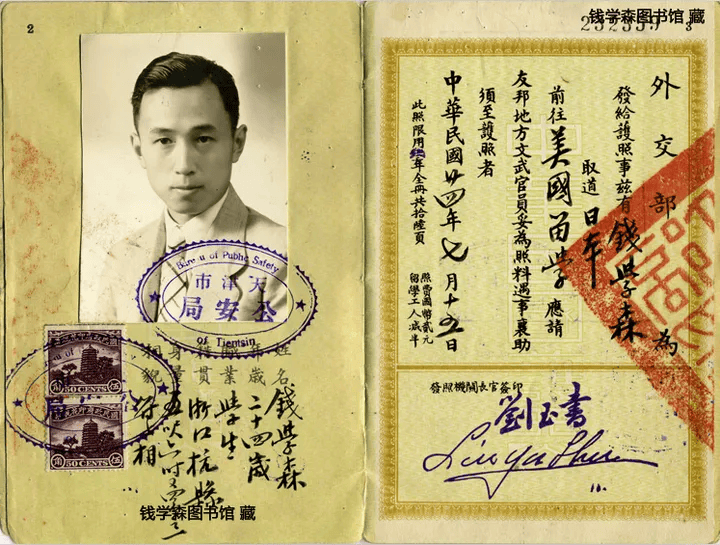 2
Bureau of Public Safety
天津市
公安局
of Tientsin
50 CENTS
50 CENTS
姓名 錢學森
年歲 二十四歲
職業 學生
籍貫 浙江杭縣
身量 五呎六吋
相貌
钱学森图书馆 藏
钱学森图书馆 藏
外交部 為
發給護照事茲有錢學森
取道日本
前往美國留學應請
友邦地方文武官員妥為照料遇事襄助
須至護照者
中華民國廿四年七月十五日
此照限用年全冊共拾陸頁
照費國幣貳元
留學工人減半
發照機關長官簽印
劉玉書
Liu Yu Shu